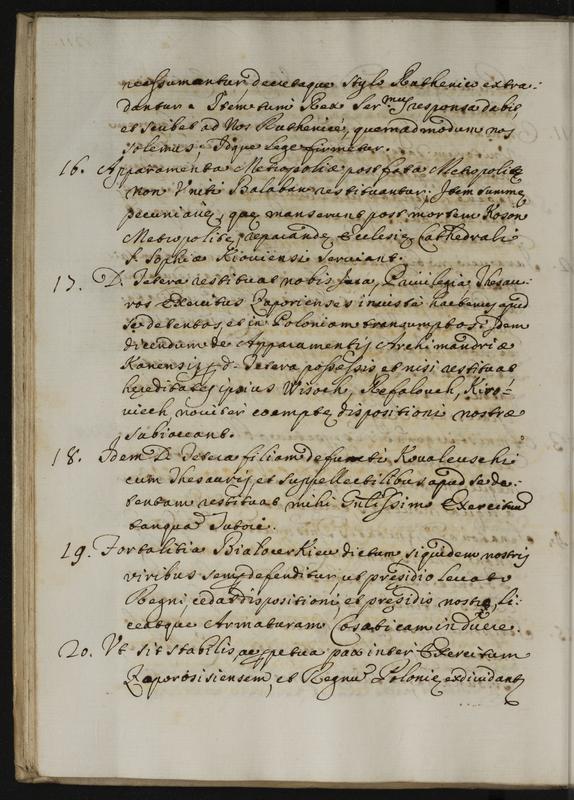 neassumantur decretaque stylo Ruthenico extra-
dantur. Item tum Rex Ser.mus responsa dabit,
et scribet ad Nos Ruthenicè, quemadmodum nos
solemus, Idque lege firmetur.
16. Apparamenta Metropoliæ post fata Metropolitę
non Vniti Balaban restituantur; Item summę
pecuniarię, quę manserunt post mortem Koson
Metropolitę, reparandę Ecclesię Cathedrali
S. Sophiæ Kiouiensi seruiant.
17. D. Tetera restituat nobis Jura, Priuilegia Thesau-
ros Exercitus Zaporienses iniustè hactenus apud
se detentos, et in Poloniam transumptos: Idem
dicendum de Apparamentis Archimandriæ
Kaneusis, d. Tetera possessis et nisi restituat
hęreditates ipsius Wisoch, Refalouch, Kiro-
uicch nouiter coemptę dispositioni nostræ
subiaceant.
18. Idem D. Tetera filiam defuncti Koualeuschi
cum Thesauris et suppellectilibus apud se de-
tentam restituat mihi Tulissime Exercitus
tanquam Tutori.
19. Fortalitia Białocerkiew dictum siquidem nostris
viribus semper defenditur, ut pręsidio leuato
Regni cedat dispositioni, et pręsidio nostro, li-
ceatque Armaturam Cosaticam inducere.
20. Vt sit stabilis, ac perpetua pax inter Exercitum
Zaporosisiensem, et Regnum Polonię, exdiuidantur